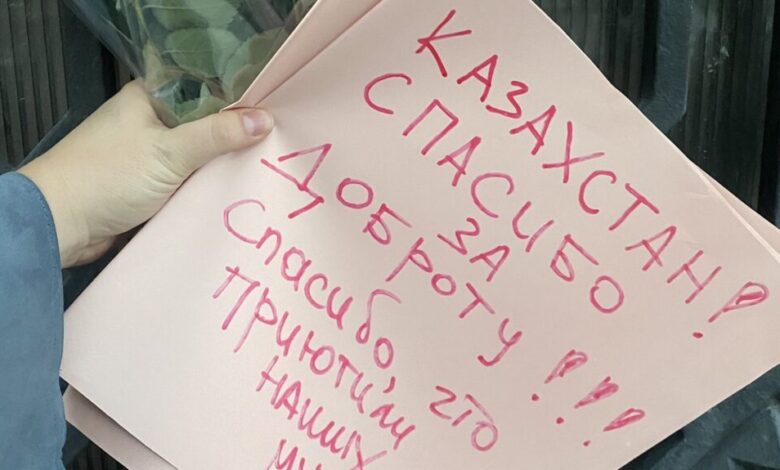 КАЗАХСТАН!
СПАСИБО
ЗА
ДОБРОТУ!!!
Спасибо, что
ПРИЮТИЛИ
НАШИХ